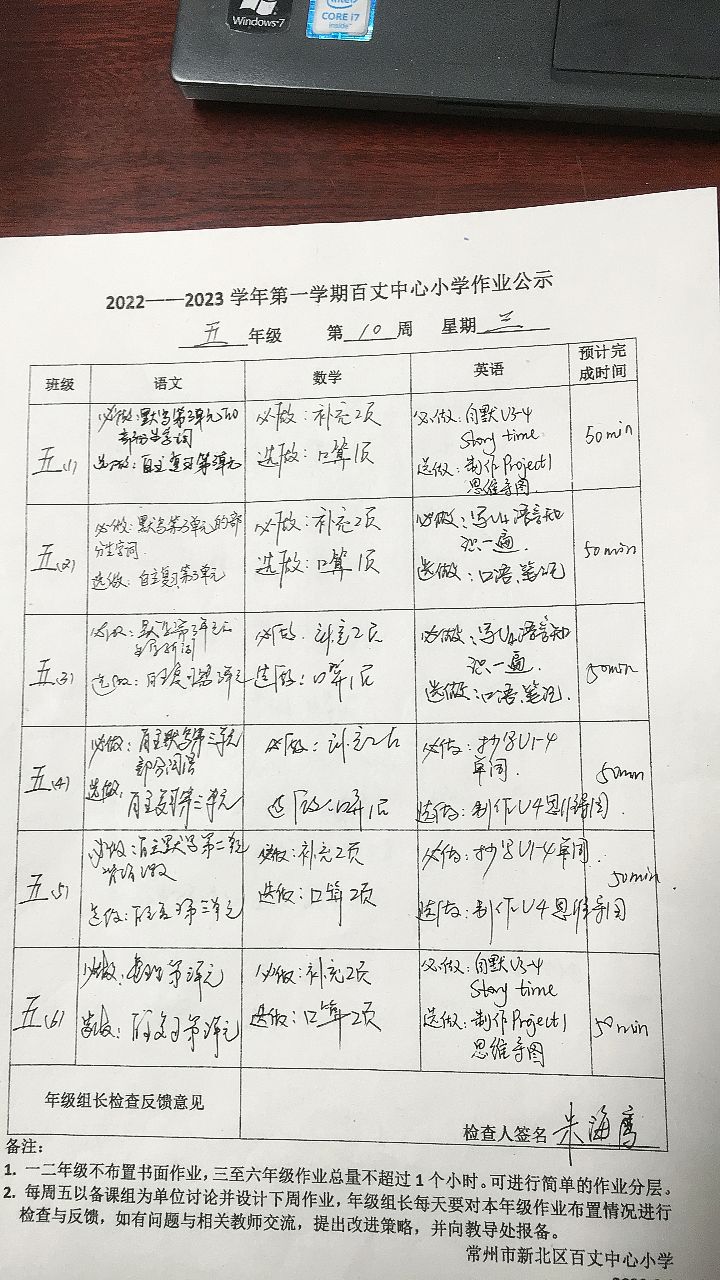 Windows 7
intel
CORE i7
inside
2022——2023 学年第一学期百丈中心小学作业公示
五 年级 第 10 周 星期 三
班级 语文 数学 英语 预计完成时间
五(1)
必做:默写第3单元的
部分生字词
选做:自主复习第3单元
必做:补充2页
选做:口算1页
必做:自默U3-4
Story time
选做:制作Project1
思维导图.
50min
五(2)
必做:默写第3单元的部
分生字词.
选做:自主复习第3单元
必做:补充2页
选做:口算1页
必做:写U4语言知
识一遍.
选做:口语笔记
50min
五(3)
必做:
选做:自主复习第3单元
必做.补充2页
选做:口算1页
必做:写U4语言知
识一遍.
选做:口语笔记.
50min
五(4)
必做:自主默写第三单元
部分词语
选做:
自主复习第三单元
必做:补充2页
选做:口算1页
必做:抄写U1-4
单词.
选做:制作U4思维导图.
50min
五(5)
必做:自主默写第三单元
选做:自主复习第三单元
必做:补充2页
选做:口算2页
必做:抄写U1-4单词.
选做:制作U4思维导图
50min.
五(6)
必做:第3单元
选做:自主复习第3单元
必做:补充2页
选做:口算2页
必做:自默U3-4
Story time
选做:制作Project1
思维导图
50min
年级组长检查反馈意见
检查人签名 朱海鸾
备注:
1. 一二年级不布置书面作业,三至六年级作业总量不超过 1 个小时。可进行简单的作业分层。
2. 每周五以备课组为单位讨论并设计下周作业,年级组长每天要对本年级作业布置情况进行
检查与反馈,如有问题与相关教师交流,提出改进策略,并向教导处报备。
常州市新北区百丈中心小学